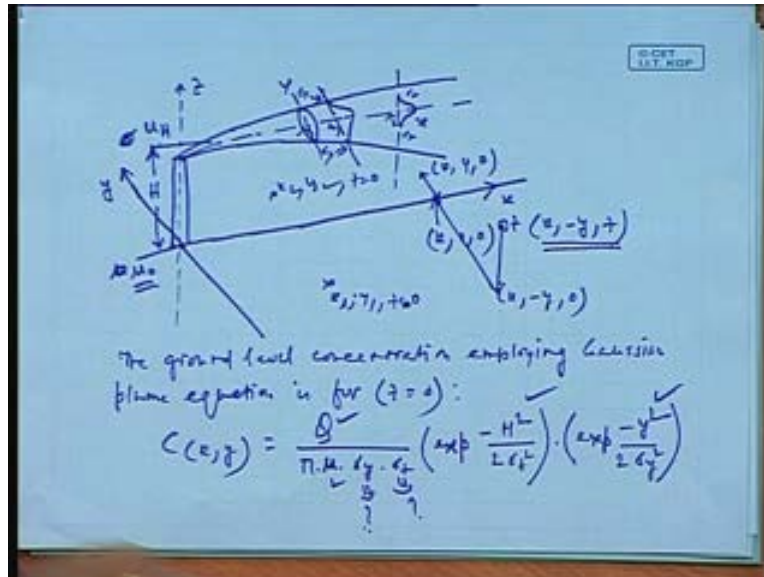 © CET
I.I.T. KGP
z
u_H
y
H
(x, y, 0)
x
(x, -y, z)
(x, -y, 0)
The ground level concentration employing Gaussian
plume equation is for (z = 0) :
C(x,y) = Q / π.u.σy.σz (exp -H²/2σz²).(exp -y²/2σy²)
? ?